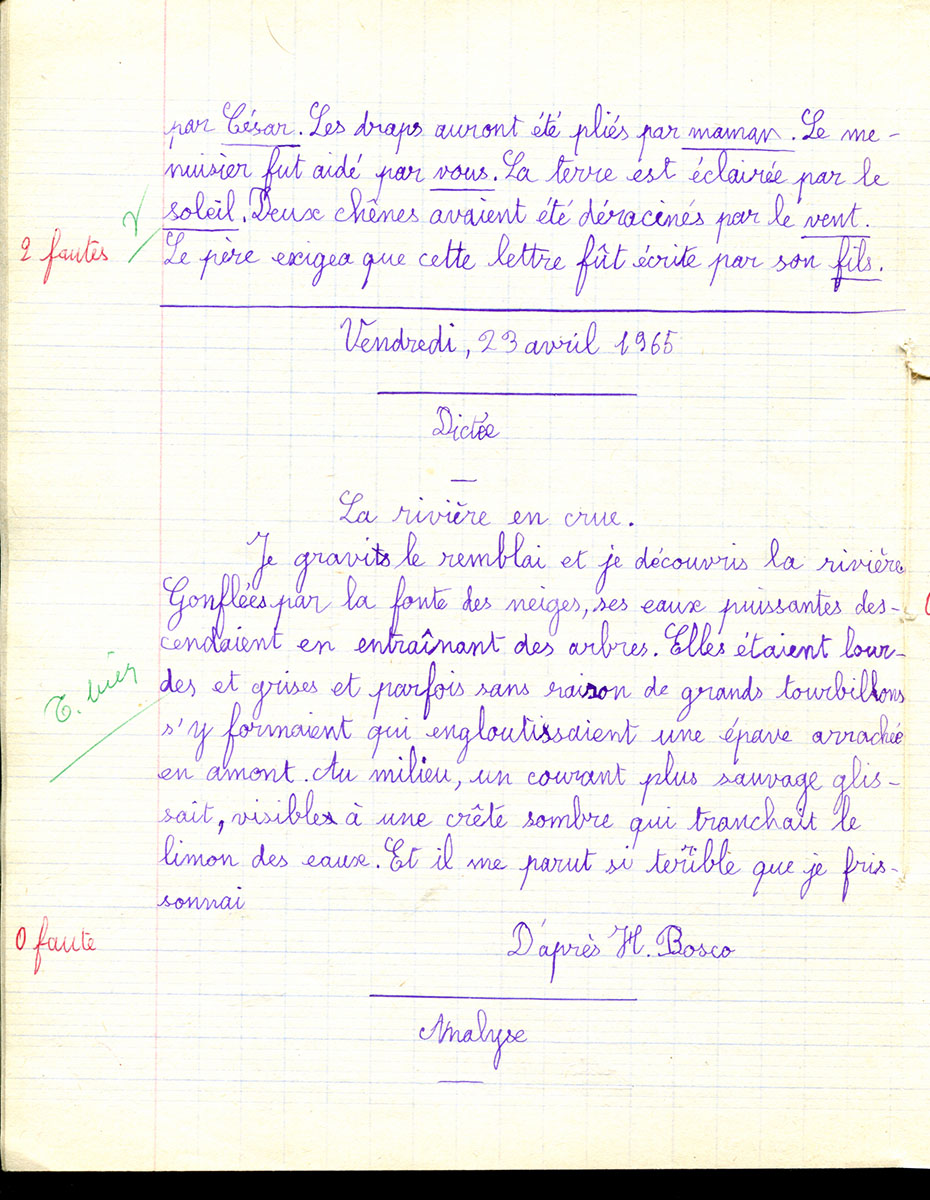 par César. Les draps auront été pliés par maman. Le me-
nuisier fut aidé par vous. La terre est éclairée par le
soleil. Deux chênes avaient été déracinés par le vent.
2 fautes
Le père exigea que cette lettre fût écrite par son fils.
Vendredi, 23 avril 1965
Dictée
La rivière en crue.
Je gravis le remblai et je découvris la rivière
Gonflées par la fonte des neiges, ses eaux puissantes des-
cendaient en entraînant des arbres. Elles étaient lour-
T. bien
des et grises et parfois sans raison de grands tourbillons
s'y formaient qui engloutissaient une épave arrachée
en amont. Au milieu, un courant plus sauvage glis-
sait, visible à une crête sombre qui tranchait le
limon des eaux. Et il me parut si terrible que je fris-
sonnai
0 faute
D'après H. Bosco
Analyse